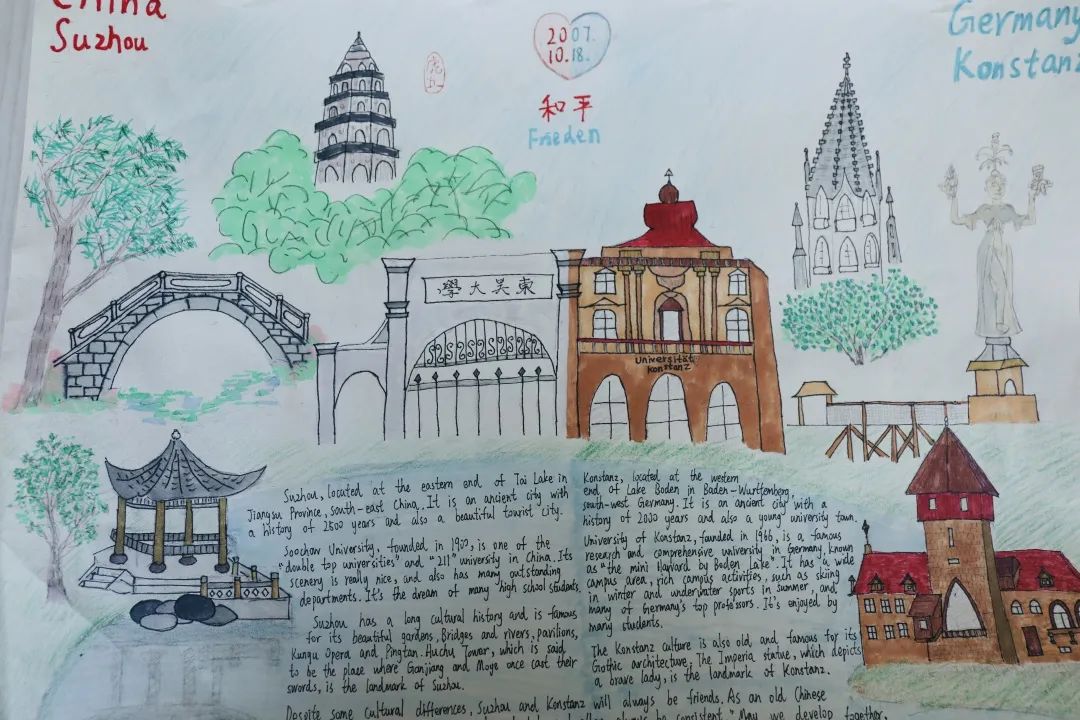 China
Suzhou
虎丘
2007.
10.18.
和平
Frieden
Germany
Konstanz
學大吳東
Universität
Konstanz
Suzhou, located at the eastern end of Tai Lake in
Jiangsu Province, south-east China. It is an ancient city with
a history of 2500 years and also a beautiful tourist city.
Soochow University, founded in 1900, is one of the
"double top universities" and "211" university in China. Its
scenery is really nice, and also has many outstanding
departments. It's the dream of many high school students.
Suzhou has a long cultural history and is famous
for its beautiful gardens, Bridges and rivers, pavilions,
Kunqu Opera and Pingtan. Huchu Tower, which is said
to be the place where Ganjiang and Moye once cast their
swords, is the landmark of Suzhou.
Konstanz, located at the western
end of Lake Boden in Baden-Wurttemberg,
south-west Germany. It is an ancient city with a
history of 2000 years and also a young university town.
University of Konstanz, founded in 1966, is a famous
research and comprehensive university in Germany, known
as "the mini Harvard by Boden Lake". It has a wide
campus area, rich campus activities, such as skiing
in winter and underwater sports in summer, and
many of Germany's top professors. It's enjoyed by
many students.
The Konstanz culture is also old, and famous for its
Gothic architecture. The Imperia statue, which depicts
a brave lady, is the landmark of Konstanz.
Despite some cultural differences, Suzhou and Konstanz will always be friends. As an old Chinese
always be consistent." May we develop together,